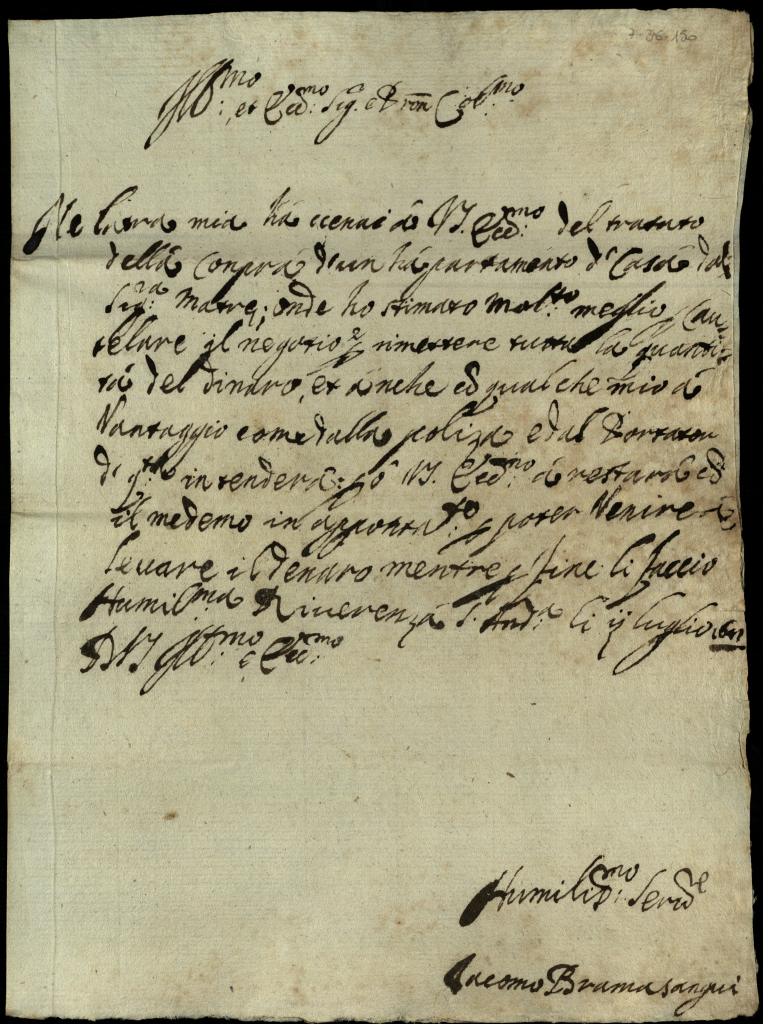 7-26-150
Ill.mo et Ecc.mo Sig. e Pron Col.mo
Ne la tra mia há ccenai á V.S. Ecc.mo del tratato
della conpra d'un há partamento d' Casa dal
Sig.ra Matre; onde ho stimato molto meglio p Cau
telare il negotio rimettere tutta la quanti
tá del dinaro, et anche cō qualche mio á
Vantaggio come dalla poliza e dal Portator
d' q.to intenderá: V.S. Ecc.mo á restará
il medemo in appontato p poter Venire á
levare il denaro mentre p fine li faccio
Humil.ma Riverenza S. And.a li ij luglio
D V.S. Ill.mo e Ecc.mo
Humiliss.mo Ser.e
Iacomo Bramasangui